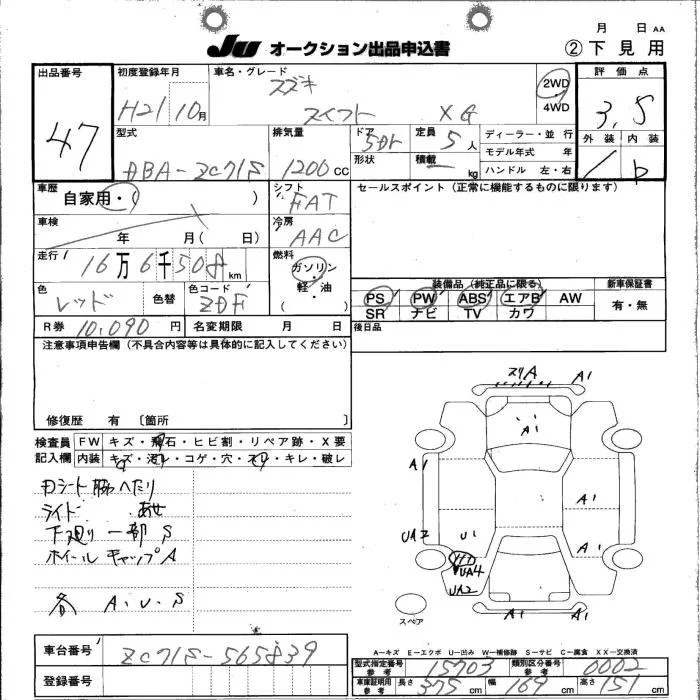 月 日 AA
JU オークション出品申込書
② 下見用
出品番号
47
初度登録年月
H21 10月
車名・グレード
スズキ
スイフト XG
2WD
・
4WD
評価点
3.5
外装 内装
b
型式
DBA-ZC71S
排気量
1200 CC
ドア
5Dr
形状
定員
5人
積載
kg
ディーラー・並行
モデル年式 年
ハンドル 左・右
車歴
自家用・( )
シフト
FAT
セールスポイント (正常に機能するものに限ります)
車検
年 月( 日)
冷房
AAC
走行
16万6千508km
燃料
ガソリン
・
軽・油
( )
色
レッド
色替
色コード
ZDF
装備品(純正品に限る)
新車保証書
PS PW ABS エアB AW
SR ナビ TV カワ
有・無
R券 10,090円
名変期限 月 日
後日品
注意事項申告欄 (不具合内容等は具体的に記入してください)
修復歴 有 〔箇所 〕
検査員
記入欄
FW キズ・飛石・ヒビ割・リペア跡・X要
内装 キズ・汚レ・コゲ・穴・スレ・キレ・破レ
ライト あせ
下廻り 一部 S
ホイールキャップA
各 A.U.S
スリA
A1
A1
A1
A1
UA2
U1
A1
UA4
UA2
A1
スペア
A－キズ E－エクボ U－凹み W－補修跡 S－サビ C－腐食 XX－交換済
車台番号
ZC71S-565839
登録番号
型式指定番号
参考
15703
類別区分番号
参考
0002
車庫証明用
参考
長さ 375cm
幅 169cm
高さ 151cm